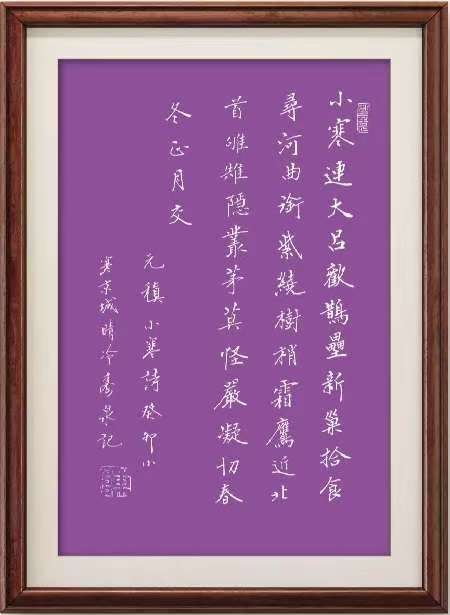 小寒連大呂歡鵲壘新巢拾食
尋河曲銜紫繞樹梢霜鷹近北
首雊雉隱叢茅莫怪嚴凝切春
冬正月交
元稹小寒詩癸卯小
寒京城晴冷壽泉記